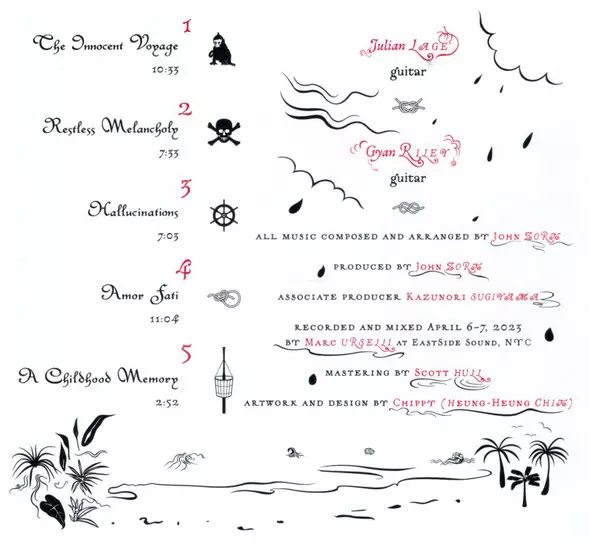 1
The Innocent Voyage
10:33
2
Restless Melancholy
7:33
3
Hallucinations
7:03
4
Amor Fati
11:04
5
A Childhood Memory
2:52
Julian Lage
guitar
Gyan Riley
guitar
ALL MUSIC COMPOSED AND ARRANGED BY JOHN ZORN
PRODUCED BY JOHN ZORN
ASSOCIATE PRODUCER KAZUNORI SUGIYAMA
RECORDED AND MIXED APRIL 6-7, 2023
BY MARC URSELLI AT EASTSIDE SOUND, NYC
MASTERING BY SCOTT HULL
ARTWORK AND DESIGN BY CHIPPY (HEUNG-HEUNG CHIN)